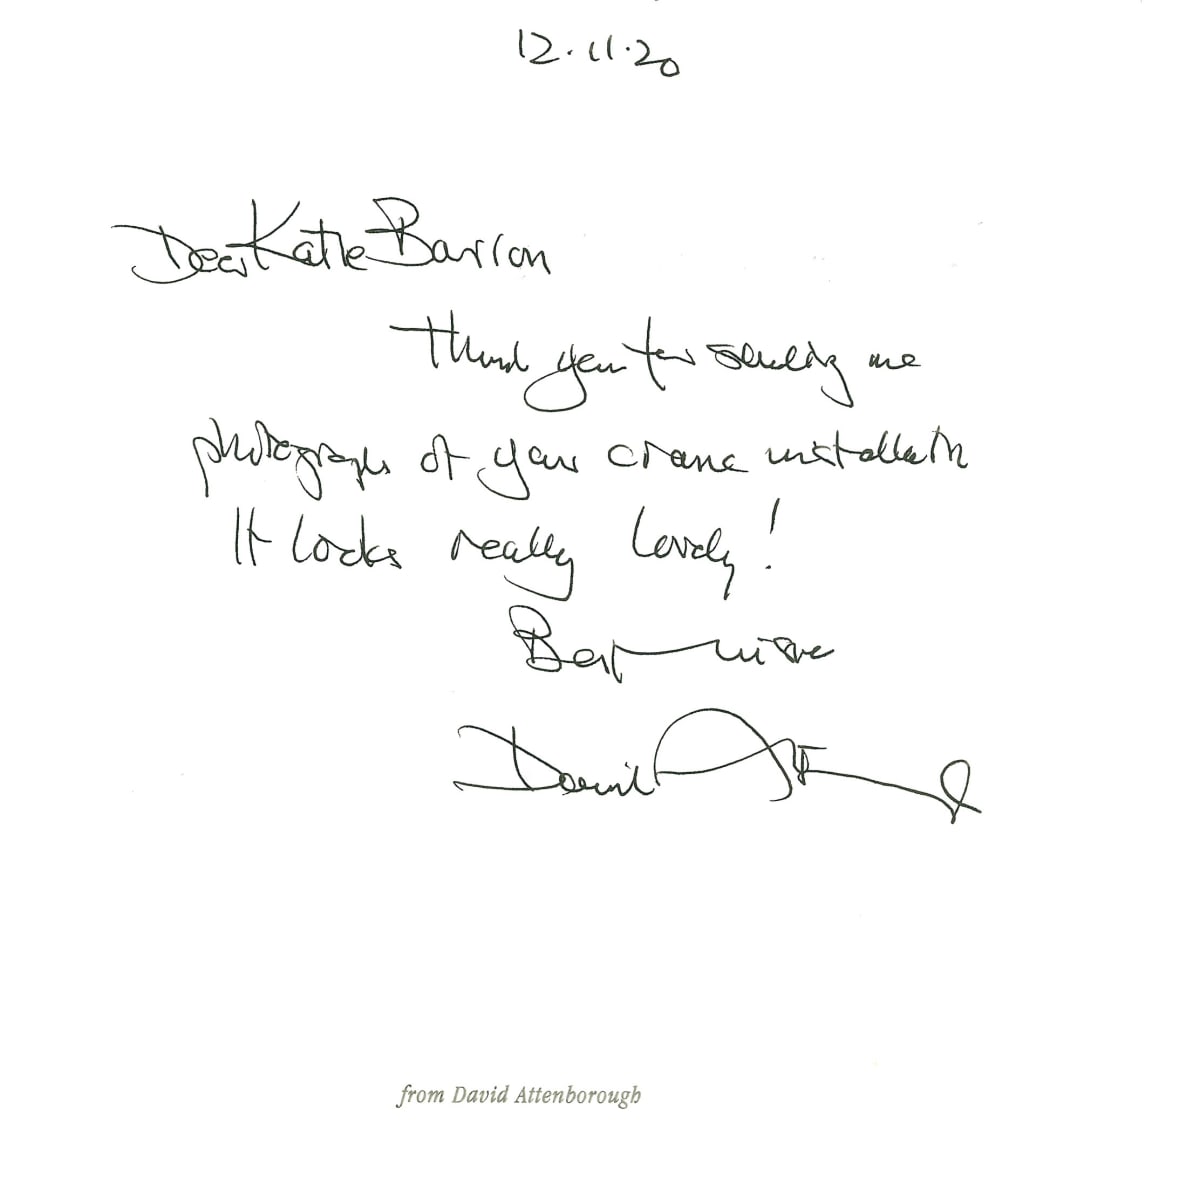 12.11.20
Dear Katie Barron
Thank you for sending me
photographs of your crane installation
It looks really lovely!
Best wishes
David Attenborough
from David Attenborough